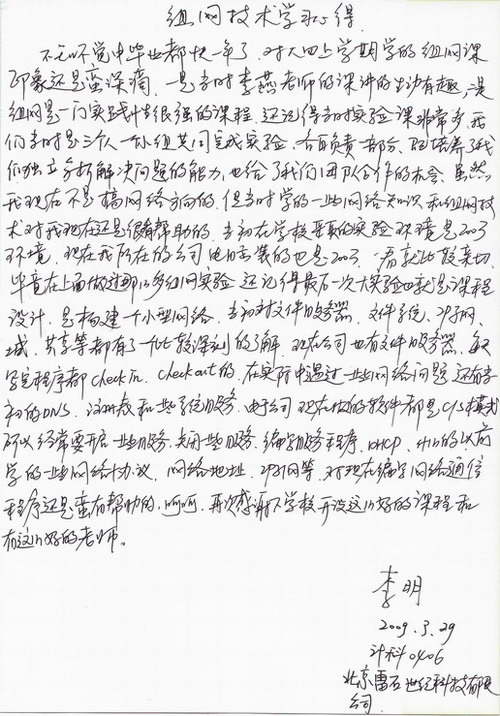 组网技术学习心得
不知不觉中毕业都快一年了，对大四上学期学的组网课
印象还是蛮深滴，一是当时李燕老师的课讲的生动有趣，
组网是一门实践性很强的课程，还记得当时实验课非常多，我
们当时是三个人一小组共同完成实验，各自负责一部分，既培养了我
们独立分析解决问题的能力，也给了我们团队合作的机会，虽然
我现在不是搞网络方向的，但当时学的一些网络知识和组网技
术对我现在还是很有帮助的，当初在学校要求的实验环境是2003
环境，现在我所在的公司电脑装的也是2003，一看就比较亲切，
毕竟在上面做过那么多组网实验，还记得最后一次大实验也就是课程
设计，是构建一个小型网络，当初对文件服务器，文件系统，
域，共享等都有了个比较深刻的了解，现在公司也有文件服务器，每
写完程序都check in，checkout的，在实际中遇过一些网络问题，还有当
初的DNS，注册表和一些系统服务，由于公司现在做的软件都是C/S模式
所以经常要开启一些服务，关闭一些服务，编写服务程序，DHCP，
学的一些网络协议，网络地址，子网等，对现在编写网络通信
程序还是蛮有帮助的，呵呵，再次感谢下学校开设这么好的课程和
有这么好的老师。
李明
2009.3.29
计科0406
北京雷石世纪科技有限
公司.